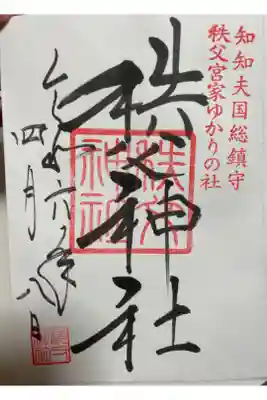 知知夫国総鎮守
秩父宮家ゆかりの社
秩父神社
秩父
神社
令和六年
四月八日